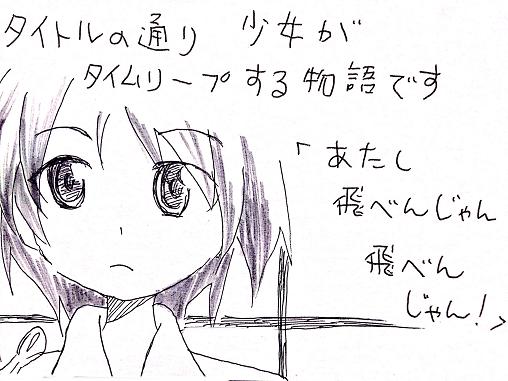 タイトルの通り 少女が
タイムリープする物語です
「あたし
飛べんじゃん
飛べん
じゃん!」